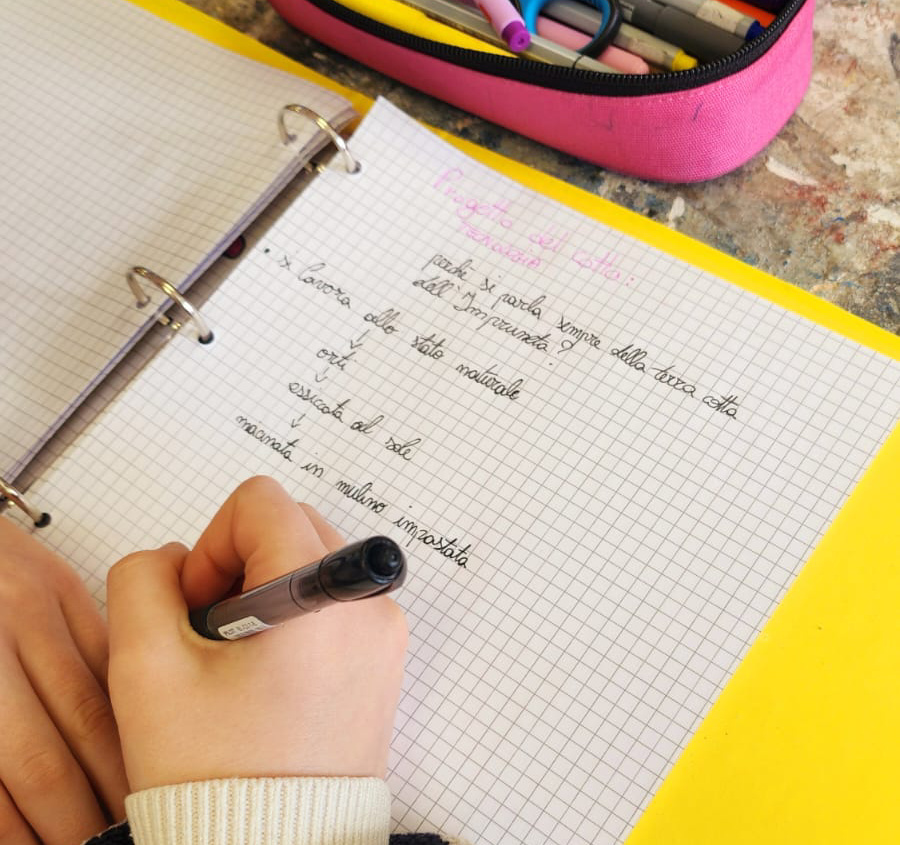 Progetto del cotto:
tecnologia
perché si parla sempre della terra cotta
dell'Impruneta?
• si lavora allo stato naturale
↓
orti
↓
essiccata al sole
↓
macinata in mulino impastata